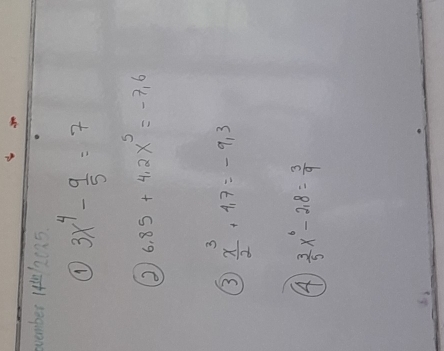 November 14th 2025.
① 3x⁴ - 9/5 = 7
② 6.85 + 4.2x⁵ = -7,6
③ x³/2 + 1,7 = -9,3
④ 3/5 x⁶ - 2,8 = 3/9